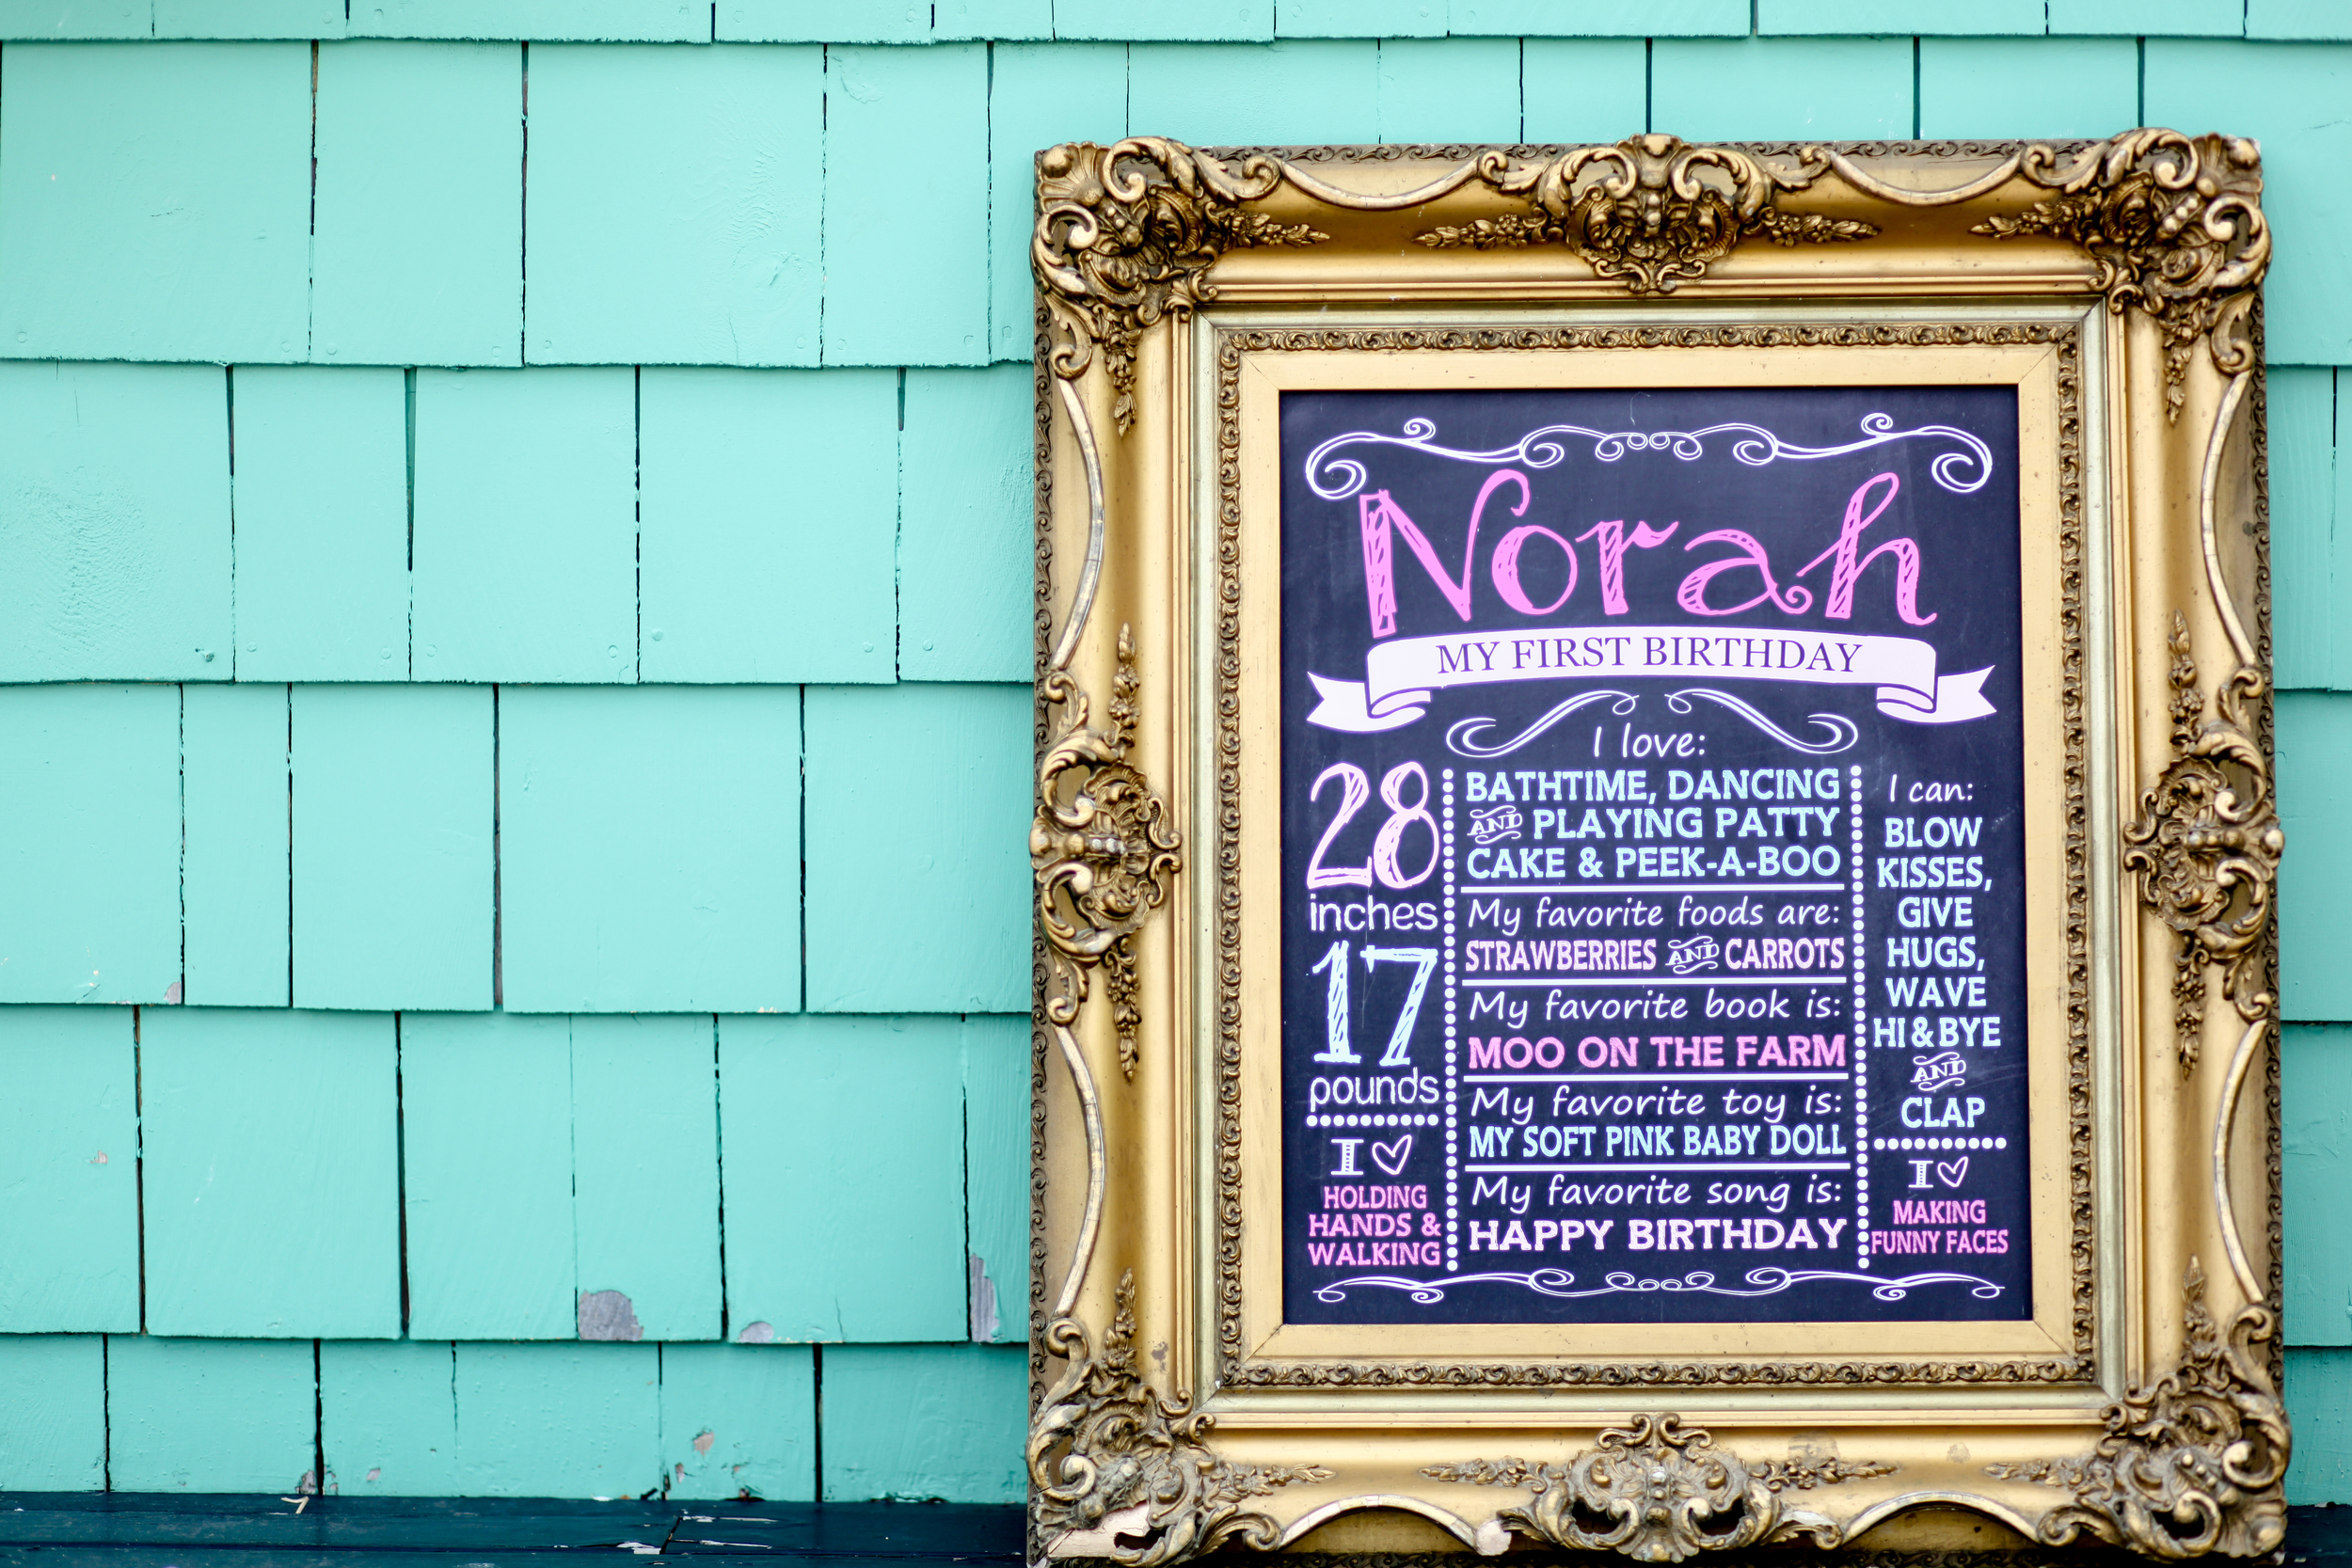 Norah
MY FIRST BIRTHDAY
28
inches
17
pounds
I ♡
HOLDING
HANDS &
WALKING
I love:
BATHTIME, DANCING
AND PLAYING PATTY
CAKE & PEEK-A-BOO
My favorite foods are:
STRAWBERRIES AND CARROTS
My favorite book is:
MOO ON THE FARM
My favorite toy is:
MY SOFT PINK BABY DOLL
My favorite song is:
HAPPY BIRTHDAY
I can:
BLOW
KISSES,
GIVE
HUGS,
WAVE
HI & BYE
AND
CLAP
I ♡
MAKING
FUNNY FACES